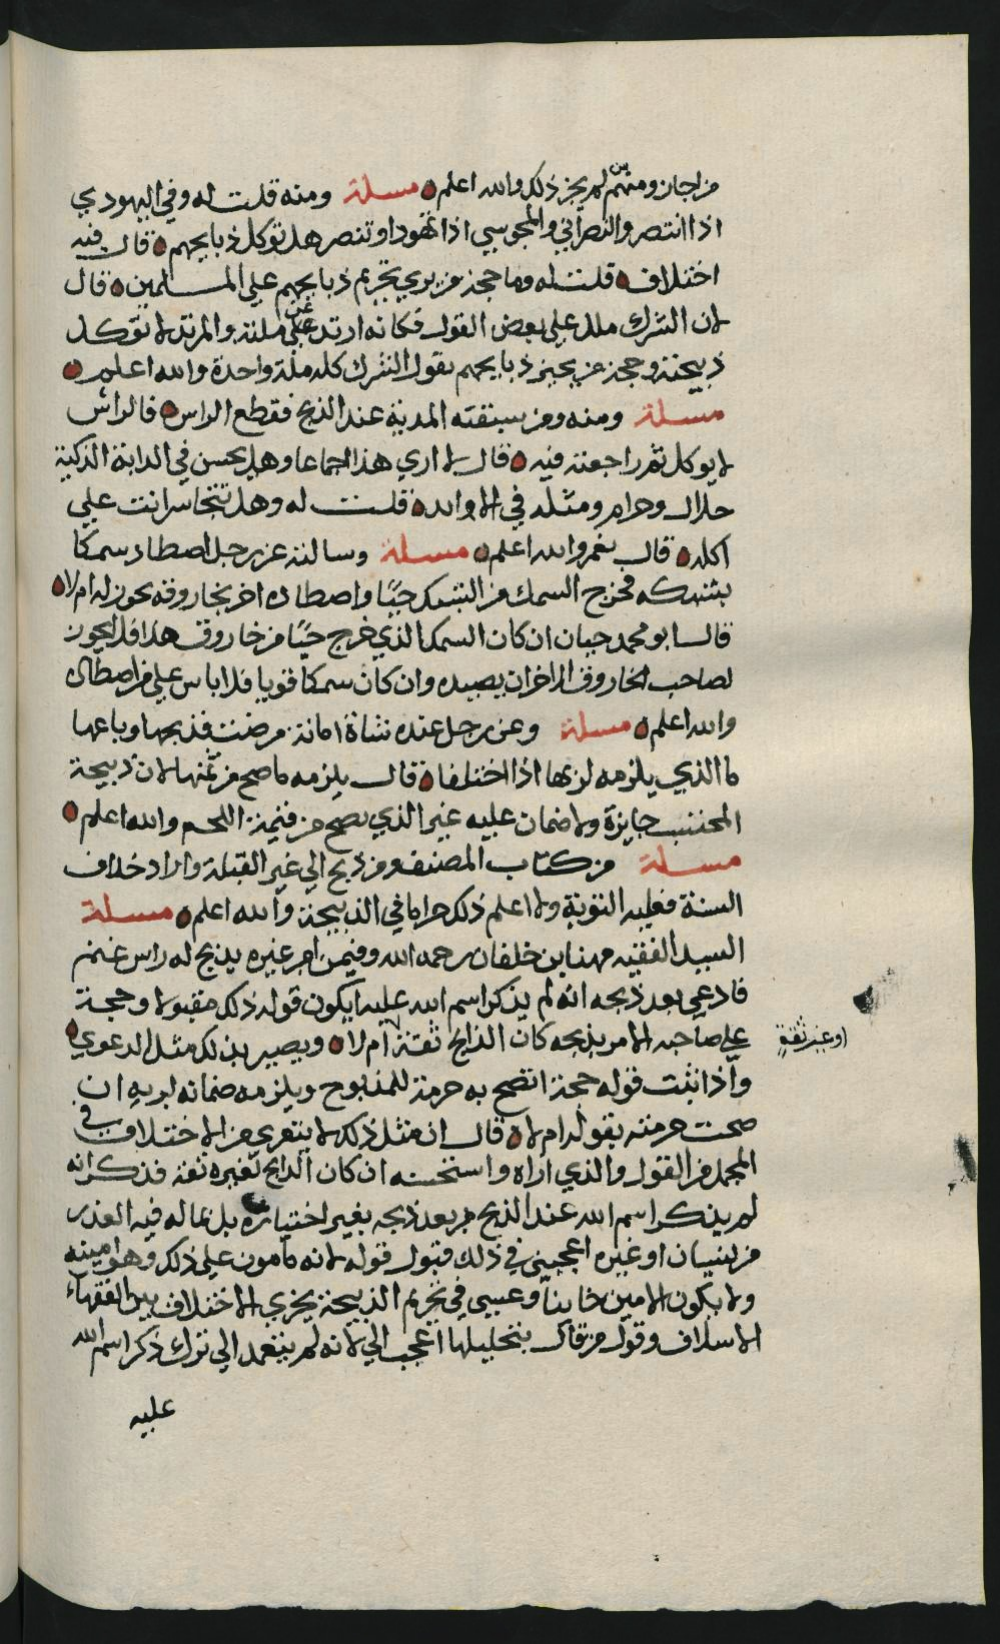 من اجاز ومنهم من لم يجز ذلك والله اعلم مسلة ومنه قلت له وفي اليهودي
اذا انتصر والنصراني والمجوسي اذا تهود او تنصر هل توكل ذبايحهم قال فيه
اختلاف قلت له وما حجة من يري تحريم ذبايحهم علي المسلمين قال
لان الشرك ملل علي بعض القول فكانه ارتد عن ملته والمرتد لا توكل
ذبيحته وحجة من يجيز ذبايحهم بقول الشرك كله ملة واحدة والله اعلم
مسلة ومنه ومن سبقته المدية عند الذبح فقطع الراس قال اش
لا يوكل ثم راجعته فيه قال لا اري هذا اجماعا وهل يحسن في الدابة الذكية
حلال وحرام ومثله في الاوالد قلت له وهل تتجاسر انت علي
اكله قال نعم والله اعلم مسلة وسالته عن رجل اصطاد سمكا
بشبكه فخرج السمك من الشبك حيًا واصطاده اخر بخاروفه يجوز له ام لا
قال ابو محمد جبان ان كان السمك الذي خرج حيًا من خاروف هذا فلا يجوز
لصاحب الخاروف الاخر ان يصيده وان كان سمكا قويا فلا باس علي من اصطاده
والله اعلم مسلة وعن رجل عنده شاة امانة مرضت فذبحها وباعها
ما الذي يلزمه لربها اذا اختلفا قال يلزمه ما صح من ثمنها لان ذبيحة
المحتسب جايزة ولا ضمان عليه غير الذي يصح من قيمة اللحم والله اعلم
مسلة من كتاب المصنف ومن ذبح الي غير القبلة واراد خلاف
السنة فعليه التوبة ولا اعلم ذلك حراما في الذبيحة والله اعلم مسلة
السيد الفقيه مهنا بن خلفان رحمه الله وفيمن امر غيره يذبح له راس غنم
فادعي بعد ذبحه انه لم يذكر اسم الله عليه ايكون قوله ذلك مقبولا وحجة
علي صاحبه الامر بذبحه كان الذابح ثقة ام لا ويصير بذلك مثل الدعوي
او غير ثقة
واذا ثبت قوله حجة اتضح به حرمة للمذبوح ويلزمه ضمانه لربه ان
صحت حرمته بقوله ام لا قال ان مثل ذلك لا يتعري من الاختلاف في
المجمل من القول والذي اراه واستحسنه ان كان الذابح لغيره ثقة فذكر انه
لم يذكر اسم الله عند الذبح من بعد ذبحه بغير اختياره بل بما له فيه العذر
من نسيان او غيره اعجبني في ذلك قبول قوله لانه مامون علي ذلك وهو امينه
ولا يكون الامين خاينا وعسي في تحريم الذبيحة يجزي الاختلاف بين الفقهاء
الاسلاف وقول من قال بتحليلها اعجب الي لانه لم يتعمد الي ترك ذكر اسم الله
عليه